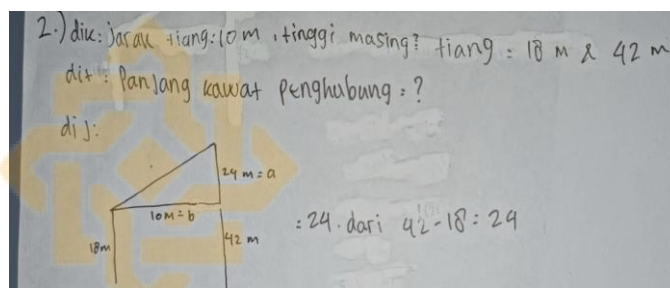 2.) dik: jarak tiang: 10 m, tinggi masing² tiang = 18 m & 42 m
dit: Panjang kawat Penghubung = ?
dij:
24 m = a
10m = b
18m
42 m
= 24. dari 42 - 18 = 24